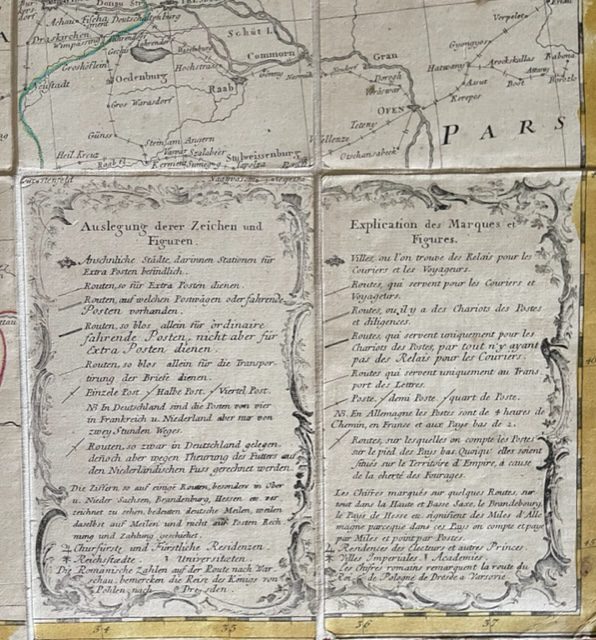 Donau Str.
Achau
Fischa
Deutschaltenburg
Draskirchen
Wimpassing
Schüt I.
Commorn
Groshöflein
Oedenburg
Hochstrass
Raab
Gönny
Neustadt
Gros Warasdorf
Güns
Steinam Angern
Heil. Kreuz
Stulweissenburg
Verpelet
Gyongyos
Gran
Hatwan
Arockskallas
Rabona
Dorogh
Assut
Boot
OFEN
Kerepes
Teteny
Vellenze
PARS
Auslegung derer Zeichen und
Figuren.
Ansehnliche Städte, darinnen Stationen für
Extra Posten befindlich.
Routen, so für Extra Posten dienen.
Routen, auf welchen Postwägen oder fahrende
Posten vorhanden.
Routen, so blos allein für ordinaire
fahrende Posten, nicht aber für
Extra Posten dienen.
Routen, so blos allein für die Transpor-
tirung der Briefe dienen.
Einzele Post. Halbe Post. Viertel Post.
NB. In Deutschland sind die Posten von vier
in Frankreich u. Niederland aber nur von
zwey Stunden Weges.
Routen, so zwar in Deutschland gelegen,
dennoch aber wegen Theurung des Futters auf
den Niederländischen Fuss gerechnet werden.
Die Ziffern, so auf einigt Routen, besonders in Ober
u. Nieder Sachsen, Brandenburg, Hessen etc. ver
zeichnet zu sehen, bedeuten deutsche Meilen, weilen
daselbst auf Meilen und nicht auf Posten Rech
nung und Zahlung geschiehet.
Churfürstl. und Fürstliche Residenzen
Reichstædte. Universitæten.
Die Romanische Zahlen auf der Route nach War
schau, bemercken die Reise des Königs von
Pohlen nach Dresden.
34 35
Explication des Marques et
Figures.
Villes, ou l'on trouve des Relais pour les
Couriers et les Voyageurs.
Routes, qui servent pour les Couriers et
Voyageurs.
Routes, ou il y a des Chariots des Postes
et diligences.
Routes, qui servent uniquement pour les
Chariots des Postes, par tout n'y ayant
pas des Relais pour les Couriers.
Routes qui servent uniquement au Trans
port des Lettres.
Poste. demi Poste. quart de Poste.
NB. En Allemagne les Postes sont de 4 heures de
Chemin, en France et aux Pays bas de 2.
Routes, sur lesquelles on compte les Postes
sur le pied des Pays bas. Quoiqu' elles soient
situés sur le Territoire d'Empire, à cause
de la cherté des Fourages.
Les Chifres marqués sur quelques Routes, sur
tout dans la Haute et Basse Saxe, le Brandebourg
le Pays de Hesse etc. signifient des Miles d'Alle
magne parceque dans ces Pays on compte et paye
par Miles et point par Postes.
Residences des Electeurs et autres Princes
Villes Imperiales. Academies.
Les chifres romains remarquent la route du
Roi de Pologne de Dresde a Varsovie
36 37